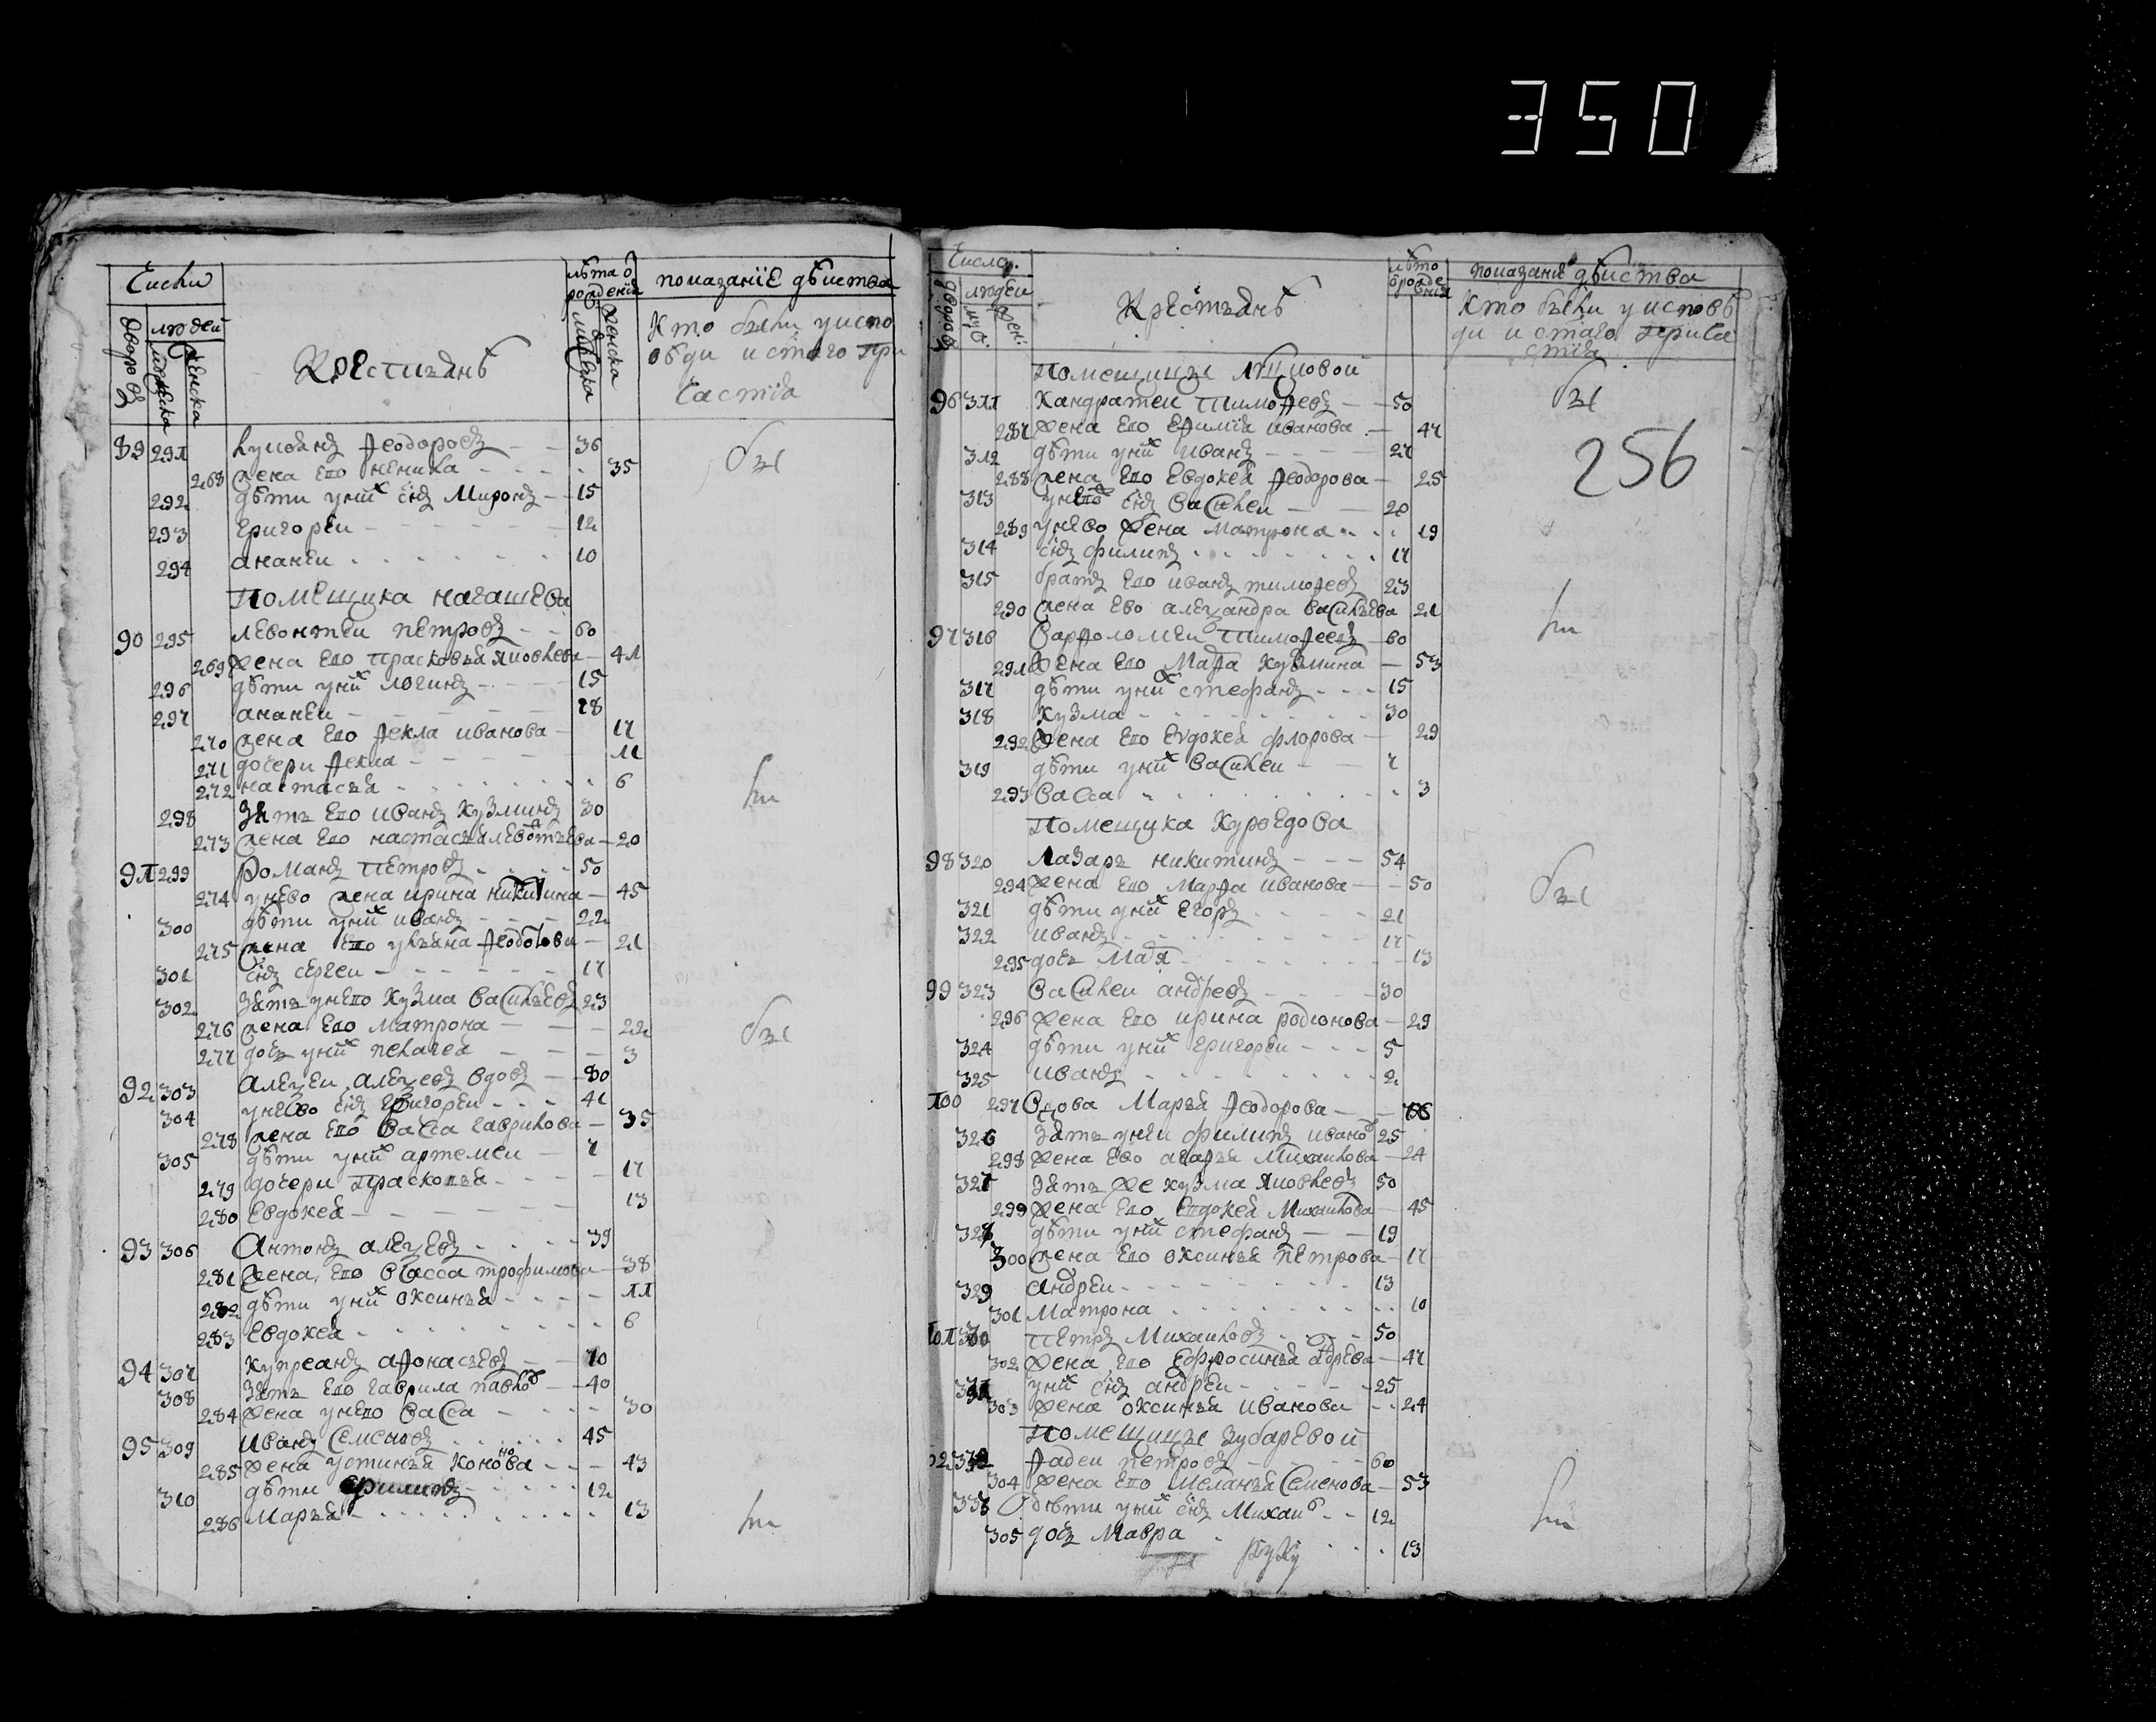 350
Числи
дворовъ
людей
мужеска
женска
Крестианъ
лѣта ѿ рождениѧ
мужеска
женска
показанїе дѣиства
Кто были у испо
вѣди и стаго при
частїѧ
89 291 лукоянъ Ѳеодоровъ 36
268 жена ево 35
292 дѣти у них сн҃ъ Миронъ 15
293 григореи 12
294 ананеи 10
Помещика нагашева
90 295 левонтеи петровъ 60
269 жена ево Прасковья яковлева 41
296 дѣти у них логинъ 15
297 ананеи 18
270 жена ево Ѳекла иванова 17
271 дочери Ѳекла 11
272 настасья 6
298 зять ево иванъ Кузминъ 30
273 жена ево настасья левонтьева 20
91 299 Романъ Петровъ 50
274 у нево жена ирина никитина 45
300 дѣти у них иванъ 22
275 жена ево ульяна Ѳедотова 21
301 сн҃ъ сергеи 17
302 зять у нево Кузма васильевъ 23
276 жена ево матрона 22
277 дочь у них пелагея 3
92 303 алеѯеи алеѯеевъ вдовъ 80
304 у нево сн҃ъ григореи 41
278 жена ево васса гаврилова 35
305 дѣти у них артемеи 7
279 дочери Прасковья 17
280 Евдокея 13
93 306 Антонъ алеѯеевъ 39
281 жена ево васса трофимова 38
282 дѣти у них оксинья 11
283 Евдокея 6
94 307 Купреанъ аѲонасьевъ 70
308 зять ево гаврила павлов 40
284 жена у нево васса 30
95 309 иванъ семеновъ 45
285 жена устинья Кононова 43
310 дѣти филипъ 12
286 Марья 13
бы
ли
бы
ли
Числа
дворовъ
людеи
муж.
жен.
Крестьянъ
лѣто ѿ рождениѧ
показание дѣиства
Кто были у исповѣ
ди и стаго прича
стиѧ
256
Помещицы
96 311 Кандратеи ТимоѲеевъ 50
287 жена ево ефимїя иванова 47
312 дѣти у них иванъ 27
288 жена ево Евдокея Ѳеодорова 25
313 у нево сн҃ъ василеи 20
289 у нево жена матрона 19
314 сн҃ъ филипъ 17
315 братъ ево иванъ тимоѲеевъ 23
290 жена ево алеѯандра васильева 21
97 316 варѲоломеи ТимоѲеевъ 60
291 жена ево МарѲа Кузмина 53
317 дѣти у них стефанъ 15
318 Кузма 30
292 жена ево Еvдокея флорова 29
319 дѣти у них василеи 7
293 васса 3
Помещика Куроедова
98 320 Лазарь никитинъ 54
294 жена ево МарѲа иванова 50
321 дѣти у них Егоръ 21
322 иванъ 17
295 дочь Марѧ 13
99 323 василеи андреевъ 30
296 жена ево ирина родионова 29
324 дѣти у них григореи 5
325 иванъ 2
100 297 вдова Марья Ѳеодорова
326 зять у неи филипъ иванов 25
298 жена ево агаѲья Михаилова 24
327 зять же кузма яковлевъ 50
299 жена ево евдокея Михаилова 45
328 дѣти у них стефанъ 19
300 жена ево оксинья петрова 17
329 андреи 13
301 Матрона 10
101 330 Петръ Михаиловъ 50
302 жена ево Ефросинья андреева 47
331 у них сн҃ъ андреи 25
303 жена оксинья иванова 24
Помещицы зубаревой
102 332 Ѳадеи петровъ 60
304 жена ево меланья семенова 53
333 дѣти у них сн҃ъ Михаил 12
305 дочь Мавра 13
бы
ли
бы
ли